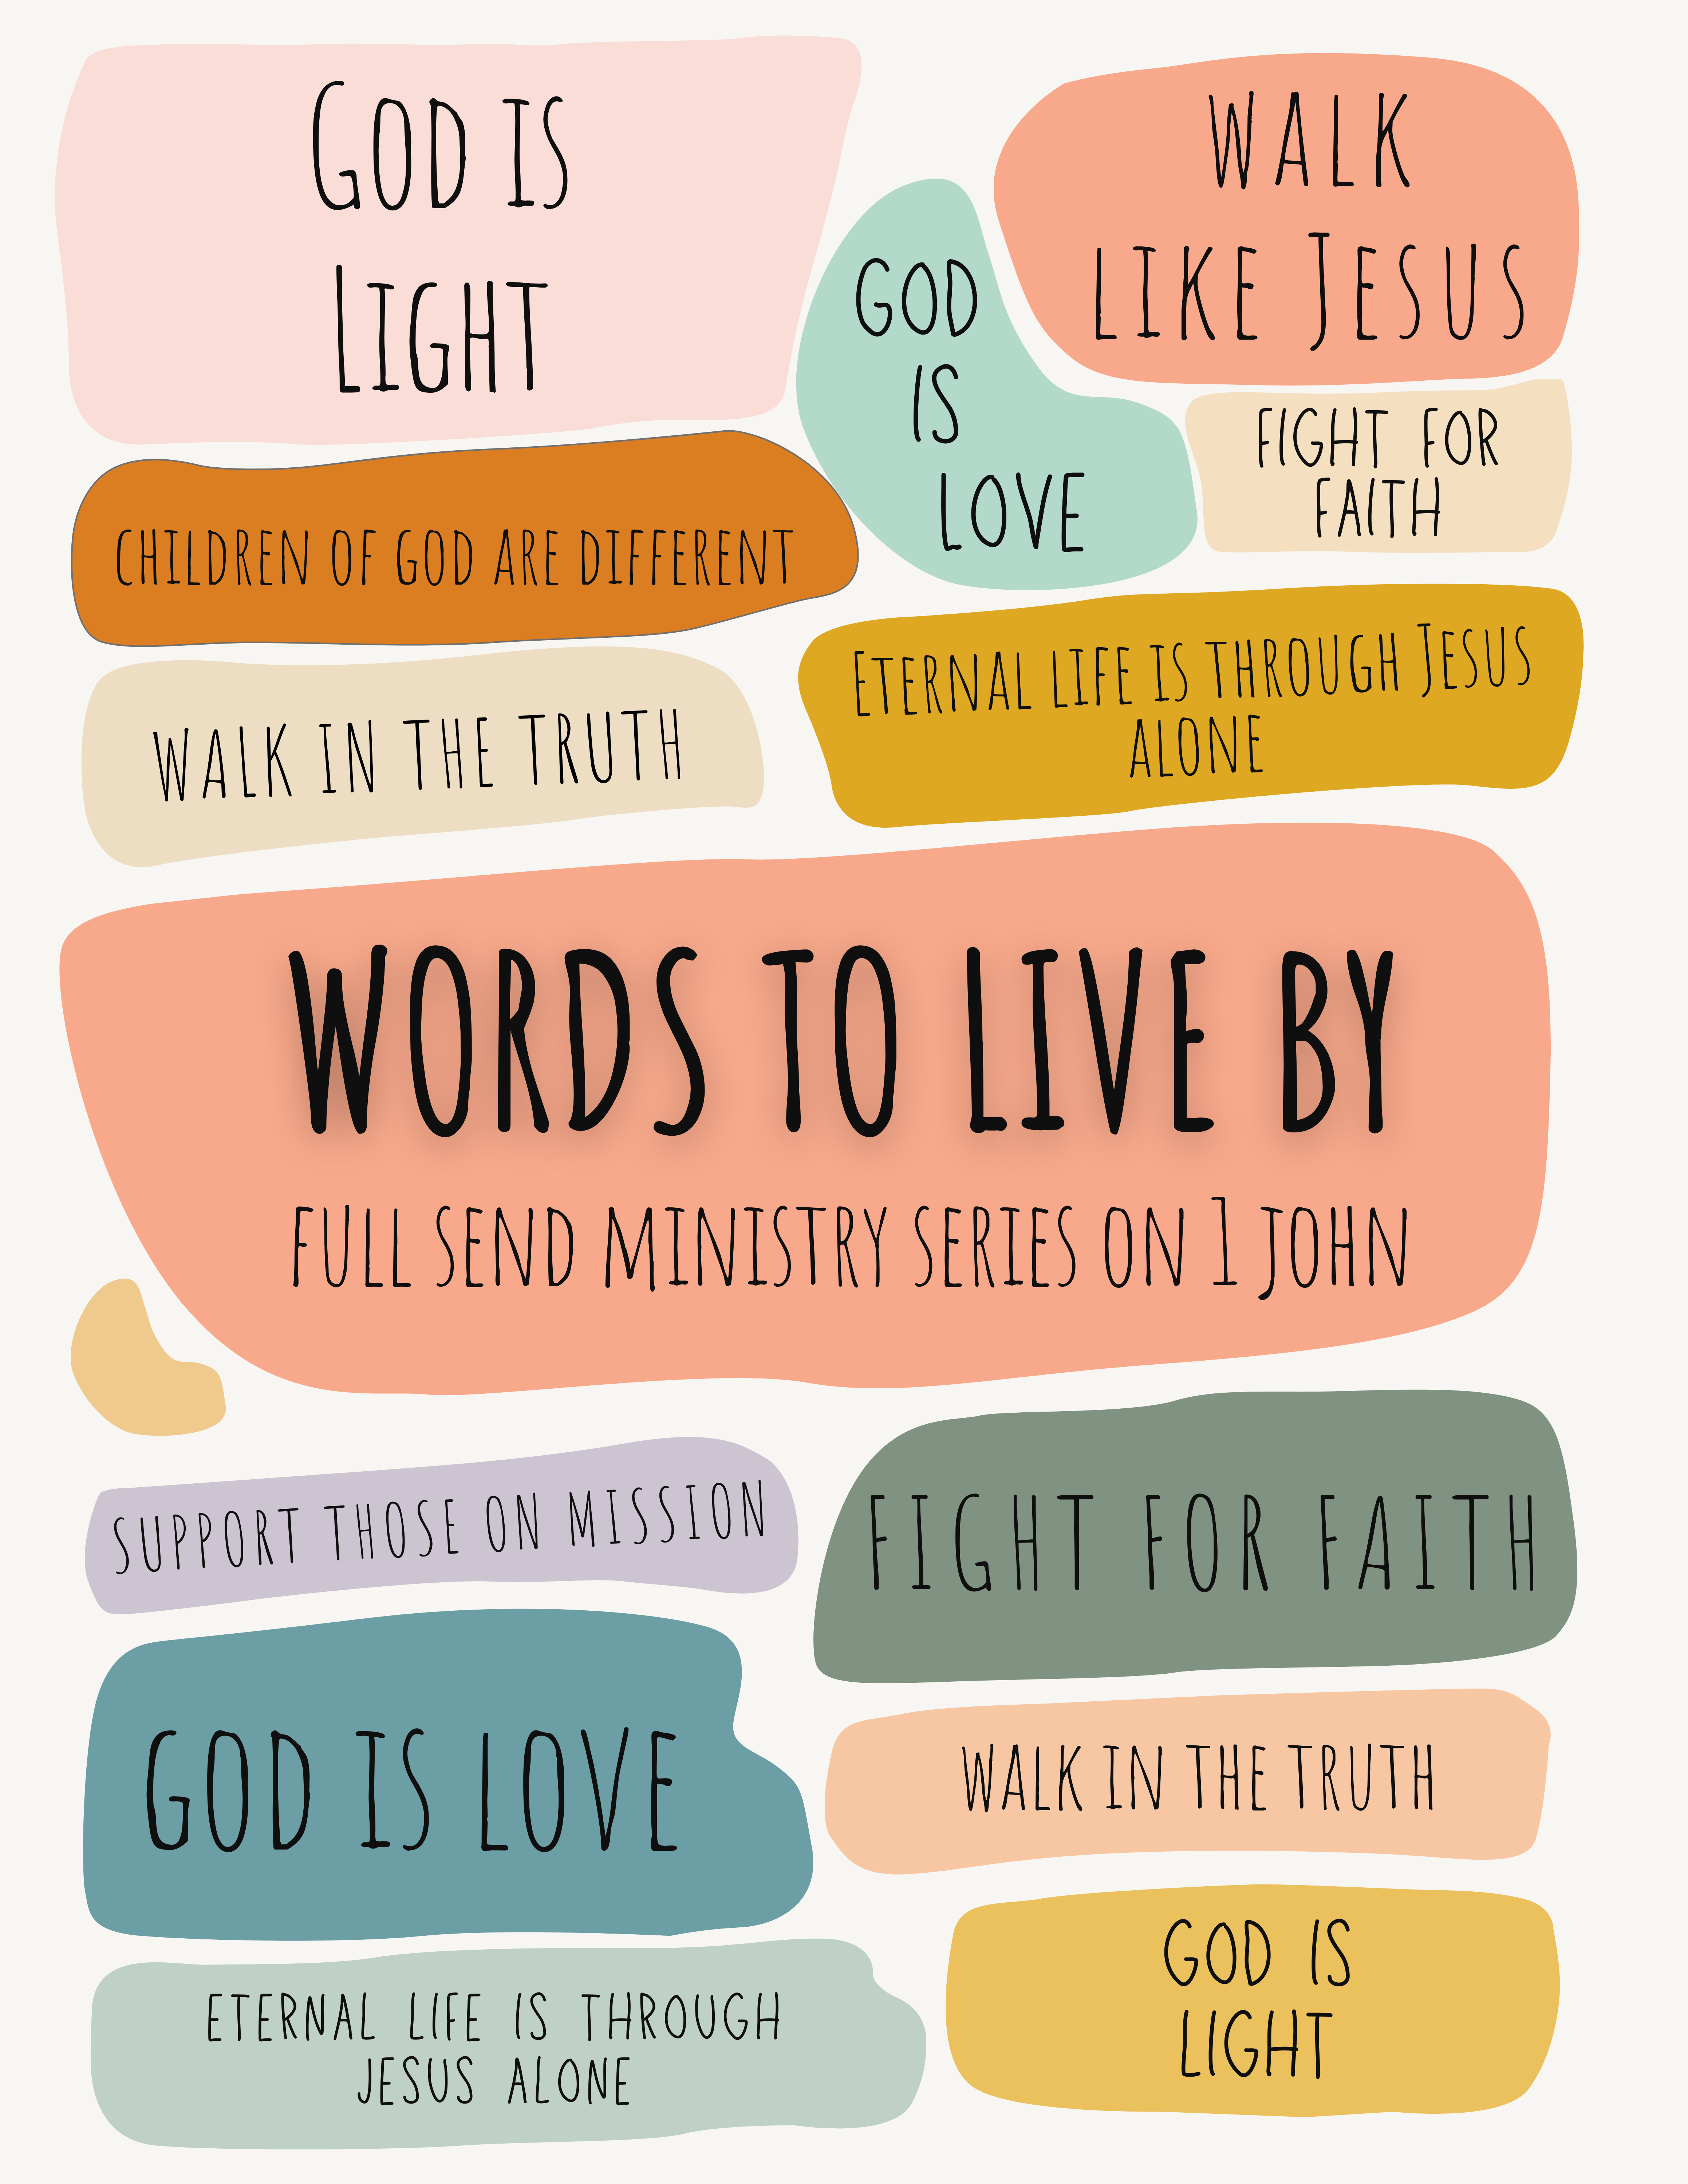 God is
Light
WALK
LIKE JESUS
GOD
IS
LOVE
FIGHT FOR
FAITH
CHILDREN OF GOD ARE DIFFERENT
ETERNAL LIFE IS THROUGH JESUS
ALONE
WALK IN THE TRUTH
WORDS TO LIVE BY
FULL SEND MINISTRY SERIES ON 1 JOHN
SUPPORT THOSE ON MISSION
FIGHT FOR FAITH
GOD IS LOVE
WALK IN THE TRUTH
GOD IS
LIGHT
ETERNAL LIFE IS THROUGH
JESUS ALONE